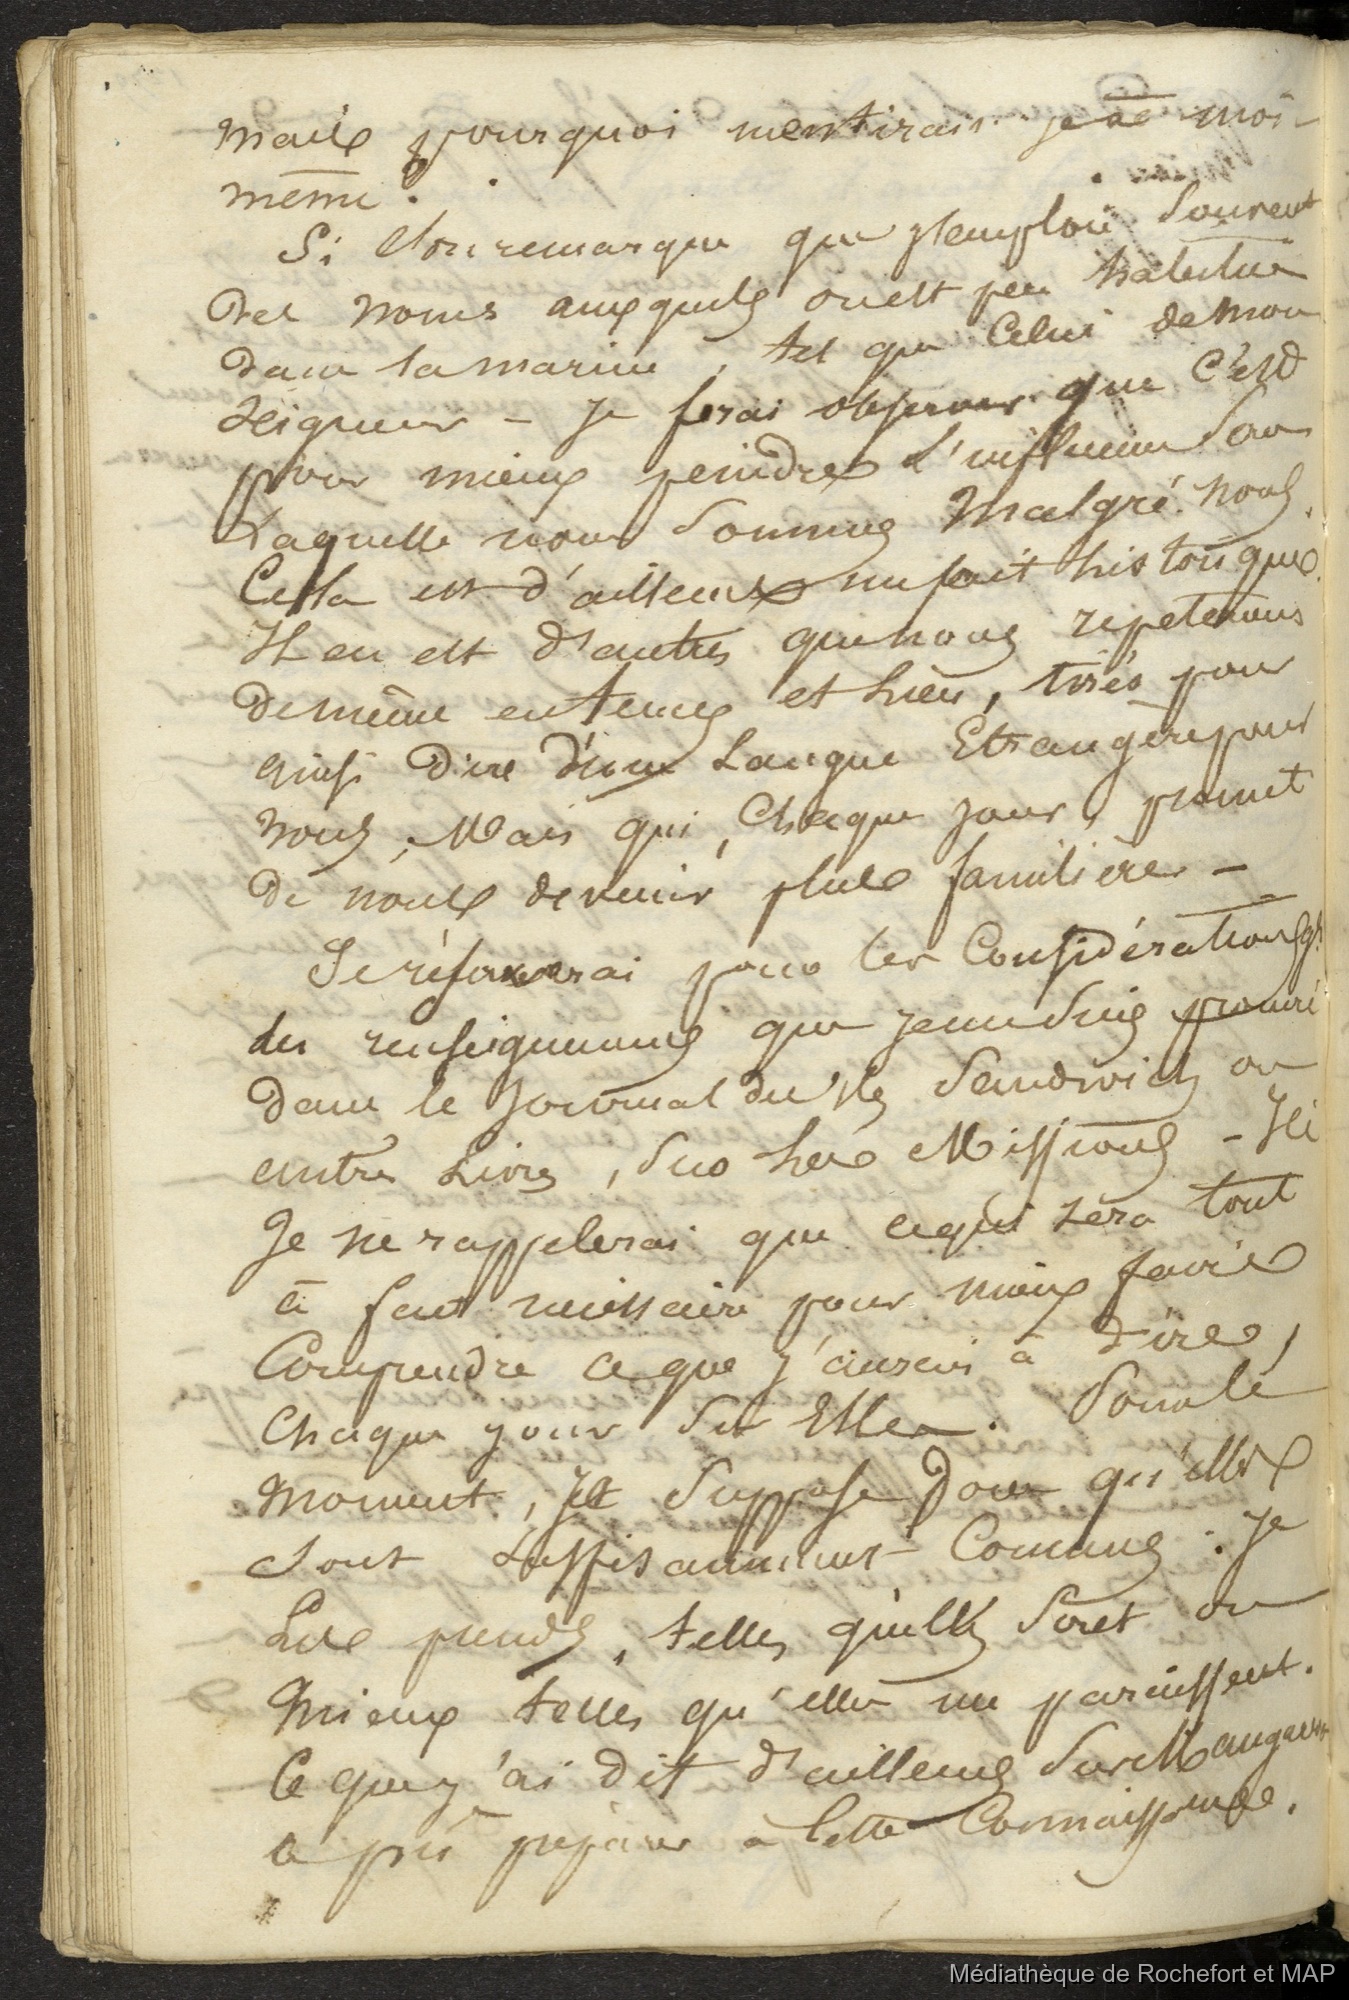 mais pourquoi mentirais je à moi
même.
Si l'on remarque que j'emploie souvent
des noms auxquels on est peu habitué
dans la marine, tel que celui de mon
seigneur - je ferai observer que c'est
pour mieux peindre l'influence sous
laquelle nous sommes malgré nous.
Cela est d'ailleurs un fait historique.
Il en est d'autres que nous répéterons
de même en tems et lieu, tirés pour
ainsi dire d'une langue Etrangère pour
nous, Mais qui, Chaque jour, promet
de nous devenir plus familière -
Je réserverai pour les Considérations gles
les renseignemens que je me suis procuré
dans le Journal des Iles Sandwich ou
autres Livres, sur les Missions - Ici
Je ne rappelerai que ce qui sera tout
à fait nécessaire pour mieux faire
Comprendre ce que j'aurai à dire,
Chaque jour sur Elles. Pour le
moment, Je suppose donc qu'elles
sont suffisamment Connues : Je
Les prends, telles qu'elles sont ou
mieux telles qu'elles me paraissent.
Ce que j'ai dit d'ailleurs sur Mangareva
a pu préparer à Cette Connaissance.
Médiathèque de Rochefort et MAP